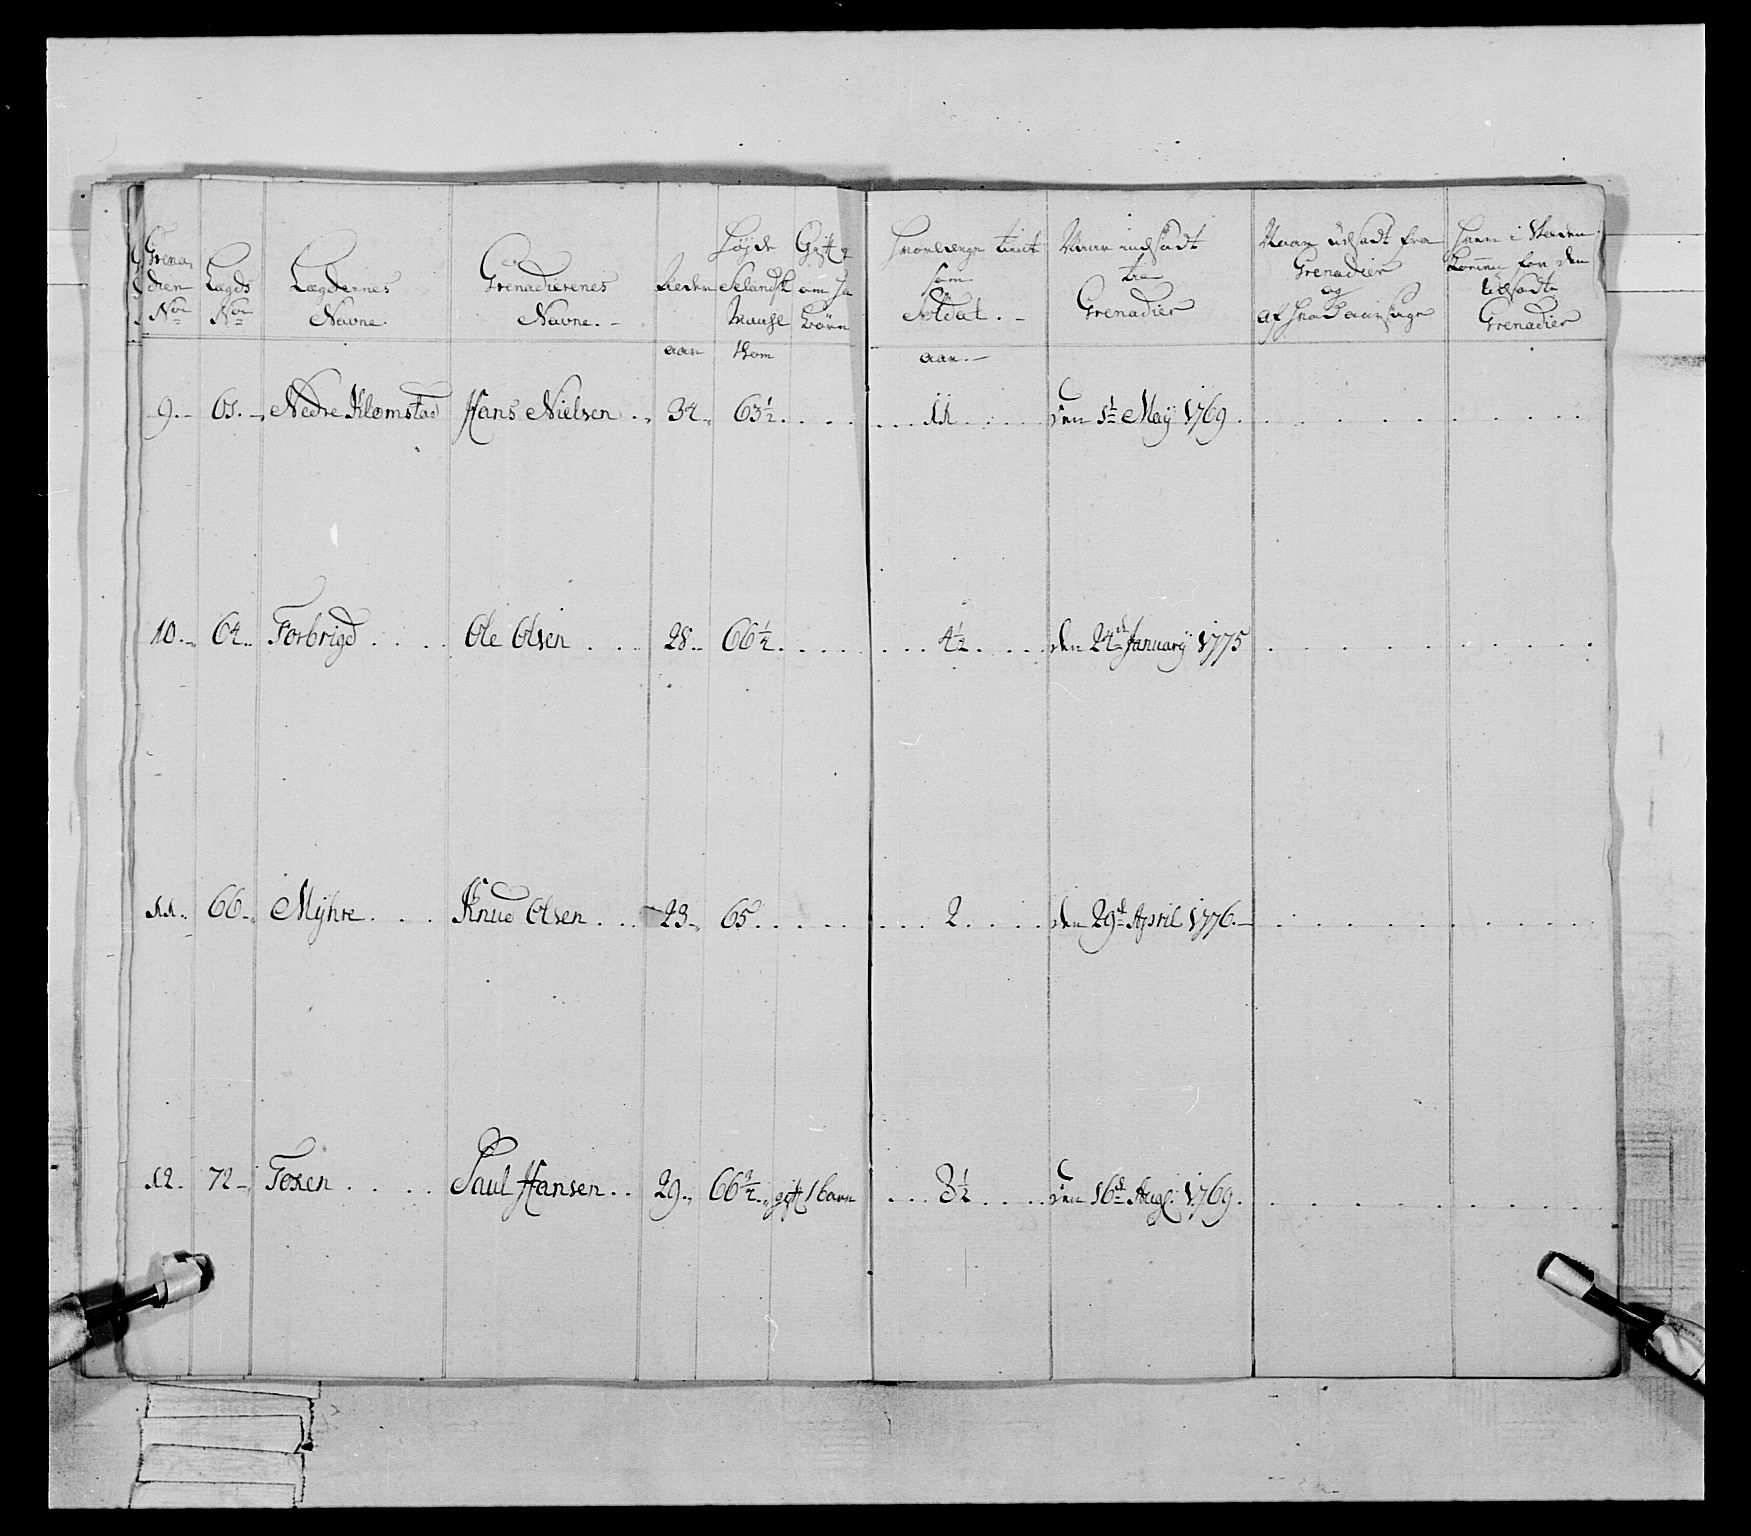 Grena-
dier
No
Lægds
No
Lægdernes
Navne.
Grenadierenes
Navne. -
Alder
aar
Højde
Selandsk
Maahl
Tom
Gift &
om ha
Børn
Hvorlænge tient
som
Soldat. -
aar. -
Naar indsadt
til
Grenadier
Naar udsadt fra
Grenadier
og
af hvad aarsage
Hvem i Steden
kommen for den
udsadte
Grenadier
9. - 61. - Nedre Klomstad Hans Nielsen . 34. 63½ . . . . . . . 11 . . . . den 1te May 1769 .
10. 64. Forbrigd . . . . Ole Olsen . . . 28. 66¼ . . . . . . . 4½ . . . . den 24de January 1775
11. 66. Mÿhre . . . Knud Olsen . . . 23. 65 . . . . . . . . 2 . . . . den 29de April 1776. -
12. 72 - Foxen . . . . Paul Hansen . . 29. 66¾ gift 1 barn . . . 8½ . . . . den 16de Aug: 1769 .